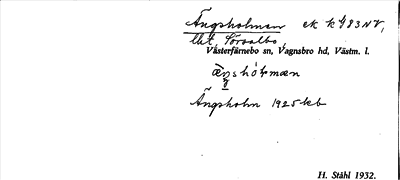 Ängsholmen ek k 4f83 NV,
llht, Sörsalbo,
Västerfärnebo sn, Vagnsbro hd, Västm. l.
æŋshòlmæn
Ängsholm 1925 kb
H. Ståhl 1932.